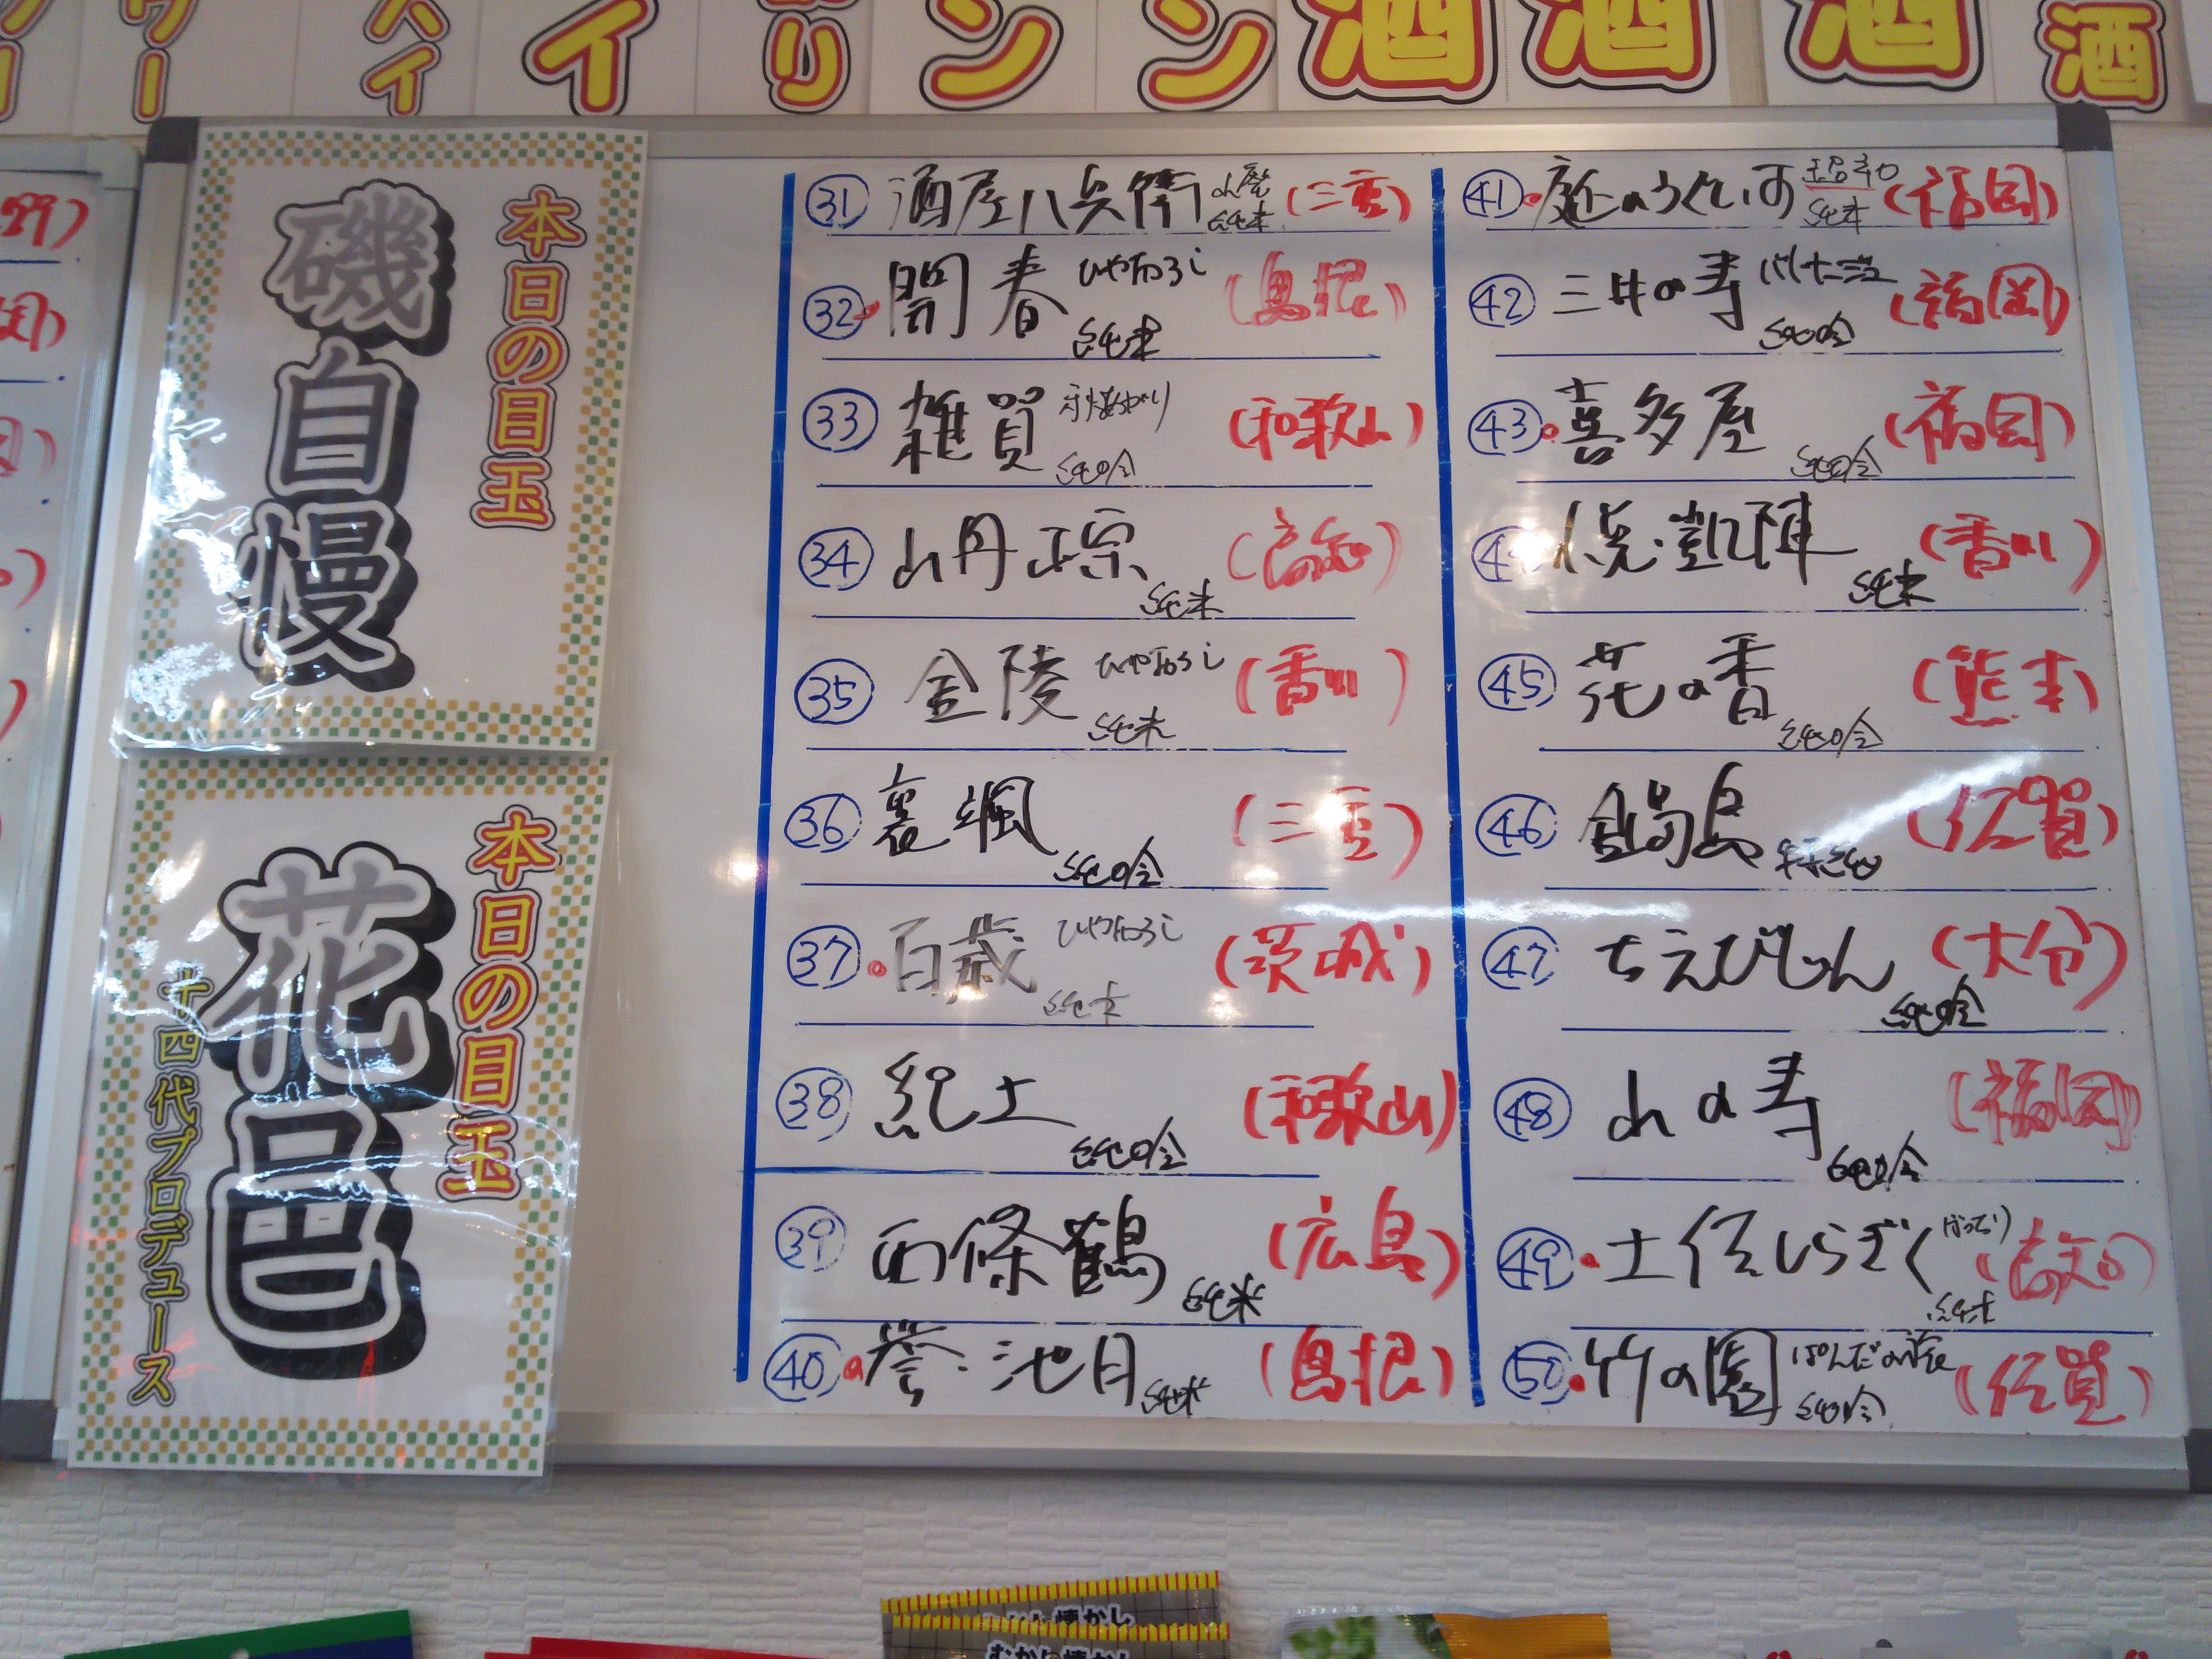 ワー
ハイ
イ
り
ン
ン
酒
酒
酒
酒
本日の目玉
磯自慢
本日の目玉
花邑
十四代プロデュース
㉛ 酒屋八兵衛 山廃 純米 (三重)
㉜ 開春 ひやおろし 純米 (島根)
㉝ 雑賀 純吟 (和歌山)
㉞ 山丹正宗 純米 (高知)
㉟ 金陵 ひやおろし 純米 (香川)
㊱ 裏颯 純吟 (三重)
㊲ 百歳 ひやおろし 純米 (茨城)
㊳ 紀土 純吟 (和歌山)
㊴ 西條鶴 純米 (広島)
㊵ 誉・池月 純米 (島根)
㊶ 庭のうぐいす 純米 (福岡)
㊷ 三井の寿 純吟 (福岡)
㊸ 喜多屋 純吟 (福岡)
悦・凱陣 純米 (香川)
㊺ 花の香 純吟 (熊本)
㊻ 鍋島 特純 (佐賀)
㊼ ちえびじん 純吟 (大分)
㊽ 山の寿 純吟 (福岡)
㊾ 土佐しらぎく 純米 (高知)
㊿ 竹の園 純吟 (佐賀)
むかし懐かし
むかし懐かし